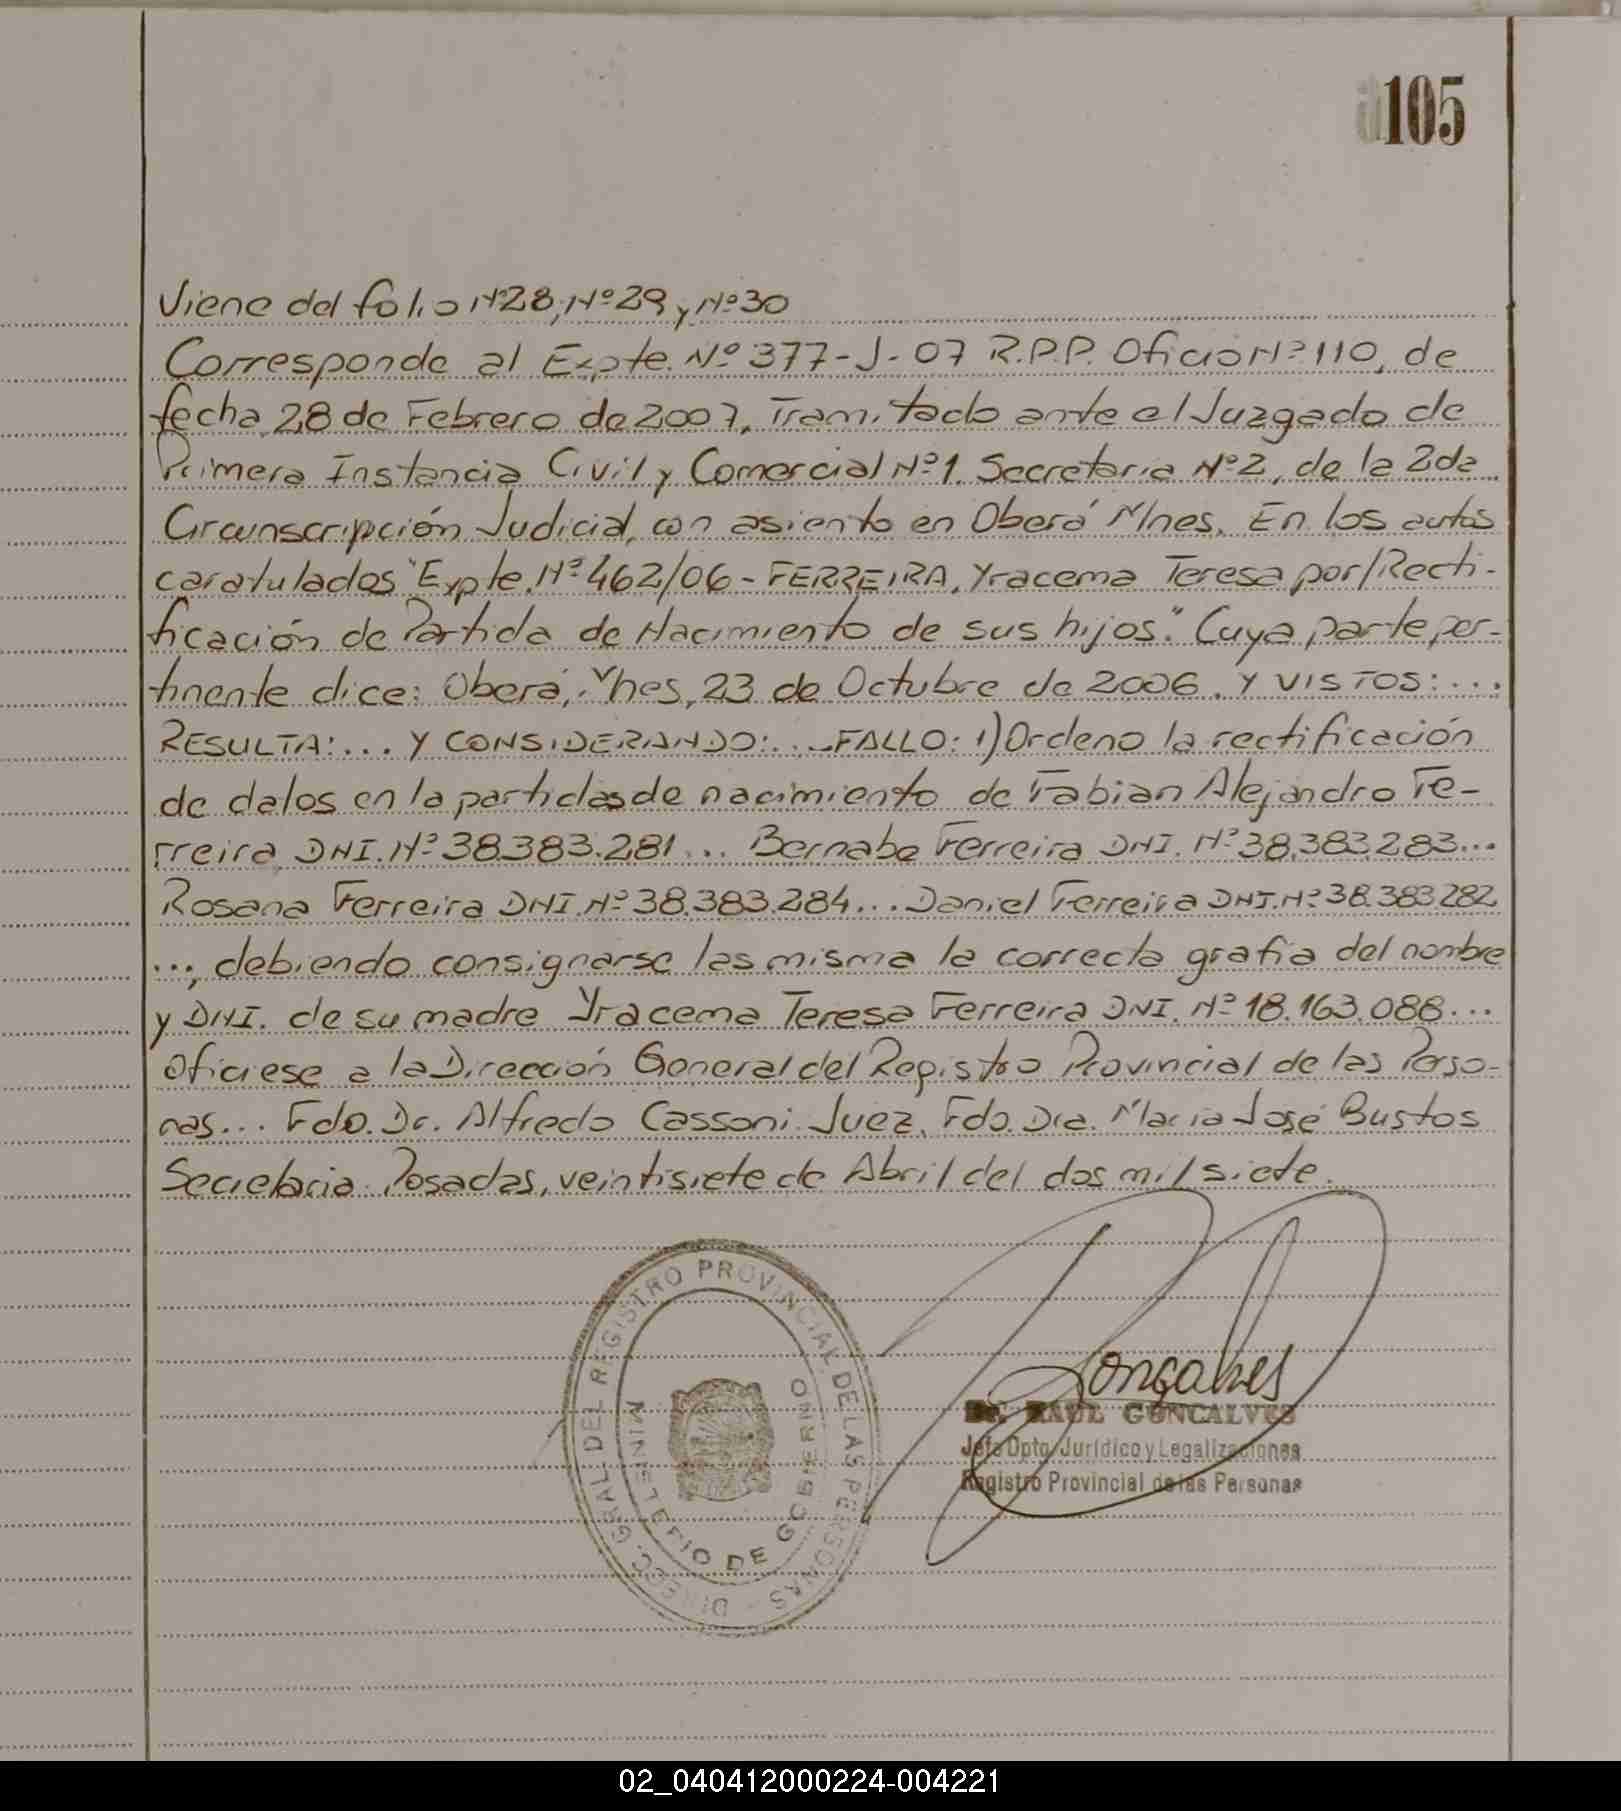 105
Viene del folio Nº28, Nº29 y Nº30
Corresponde al Expte. Nº 377-J-07 R.P.P. Oficio Nº 110, de
fecha 28 de Febrero de 2007, Tramitado ante el Juzgado de
Primera Instancia Civil y Comercial Nº1. Secretaria Nº2, de la 2da
Circunscripción Judicial, con asiento en Oberá Mnes. En los autos
caratulados "Expte. Nº 462/06 - FERREIRA, Yracema Teresa por/Recti-
ficación de Partida de Nacimiento de sus hijos." Cuya parte per-
tinente dice: Oberá, Mnes, 23 de Octubre de 2006. Y VISTOS:...
RESULTA:... Y CONSIDERANDO:... FALLO: 1) Ordeno la rectificación
de datos en la partidas de nacimiento de Fabian Alejandro Fe-
rreira DNI. Nº 38383.281... Bernabe Ferreira DNI. Nº 38.383.283...
Rosana Ferreira DNI. Nº 38.383.284... Daniel Ferreira DNI. Nº 38.383.282
..., debiendo consignarse las misma la correcta grafia del nombre
y DNI. de su madre Yracema Teresa Ferreira DNI. Nº 18.163.088...
Oficiese a la Dirección General del Registro Provincial de las Perso-
nas... Fdo. Dr. Alfredo Cassoni. Juez. Fdo. Dra. Maria José Bustos
Secretaria. Posadas, veintisiete de Abril del dos mil siete.
DIREC. GRAL. DEL REGISTRO PROVINCIAL DE LAS PERSONAS
MINISTERIO DE GOBIERNO
Gonçalves
Dr. RAUL GONCALVES
Jefe Dpto. Jurídico y Legalizaciones
Registro Provincial de las Personas
02_040412000224-004221